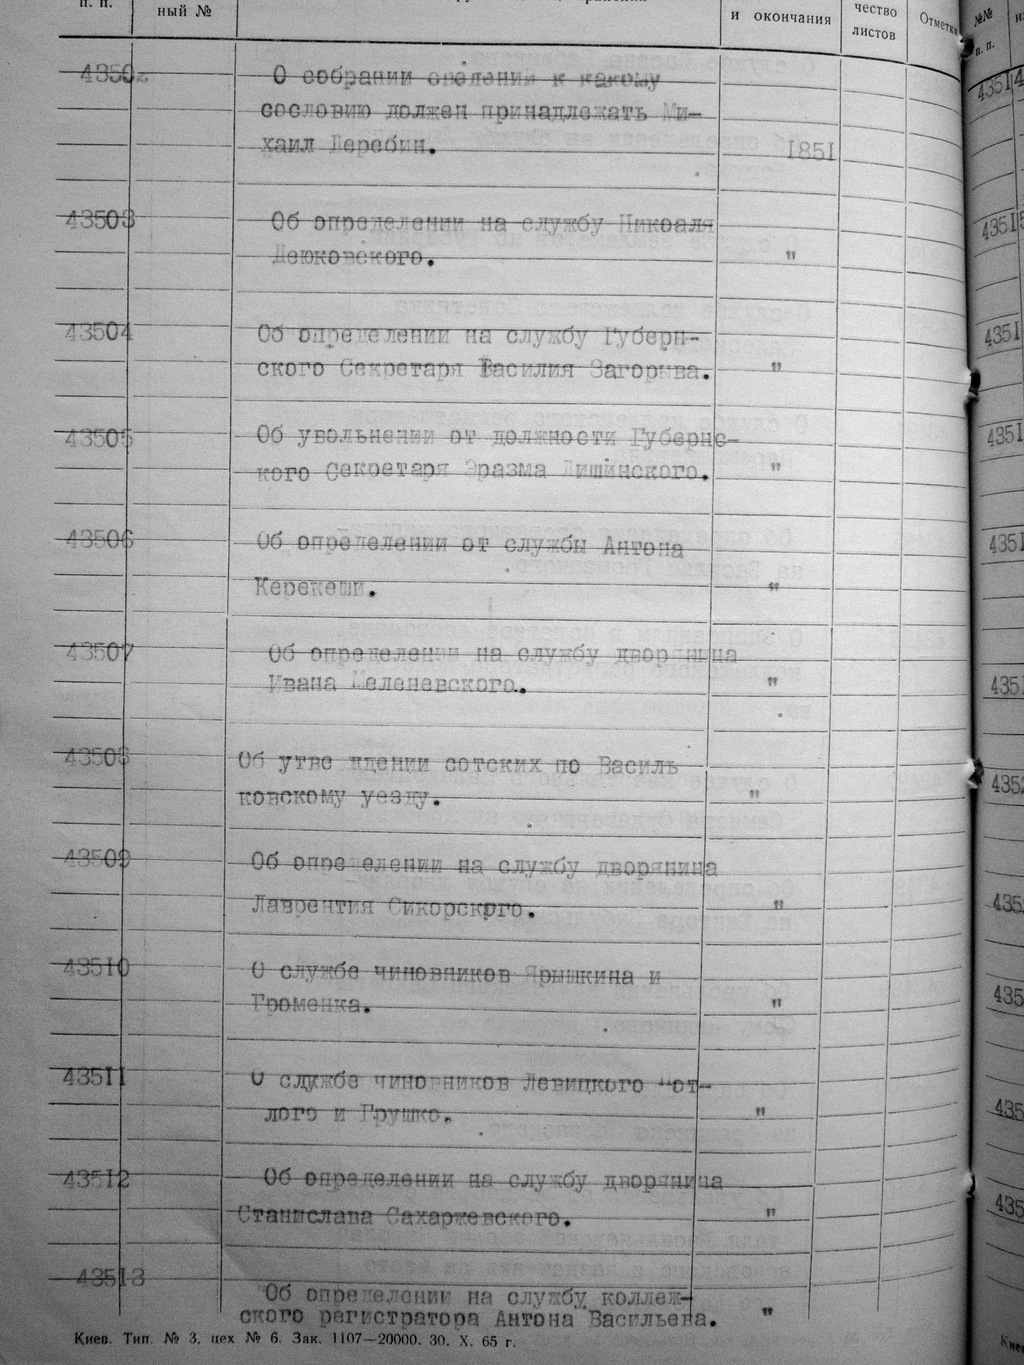 п. п.
ный №
и окончания
чество
листов
Отметки
№№
п. п.
43502
О собрании сведений к какому
сословию должен принадлежать Ми-
хаил Теребин.
1851
43503
Об определении на службу Никоаля
Деюковского.
"
43504
Об определении на службу Губерн-
ского Секретаря Василия Загорыва.
"
43505
Об увольнении от должности Губернс-
кого Секретаря Эразма Лишинского.
"
43506
Об определении от службы Антона
Керекеши.
"
43507
Об определении на службу дворянина
Ивана Меленевского.
"
43508
Об утве ждении сотских по Василь
ковскому уезду.
"
43509
Об определении на службу дворянина
Лаврентия Сикорского.
"
43510
О службе чиновников Ярышкина и
Громенка.
"
43511
О службе чиновников Левицкого
лого и Грушко.
"
43512
Об определении на службу дворянина
Станислава Сахаржевского.
"
43513
Об определении на службу коллеж-
ского регистратора Антона Васильева.
"
Киев. Тип. № 3, цех № 6. Зак. 1107—20000. 30. X. 65 г.